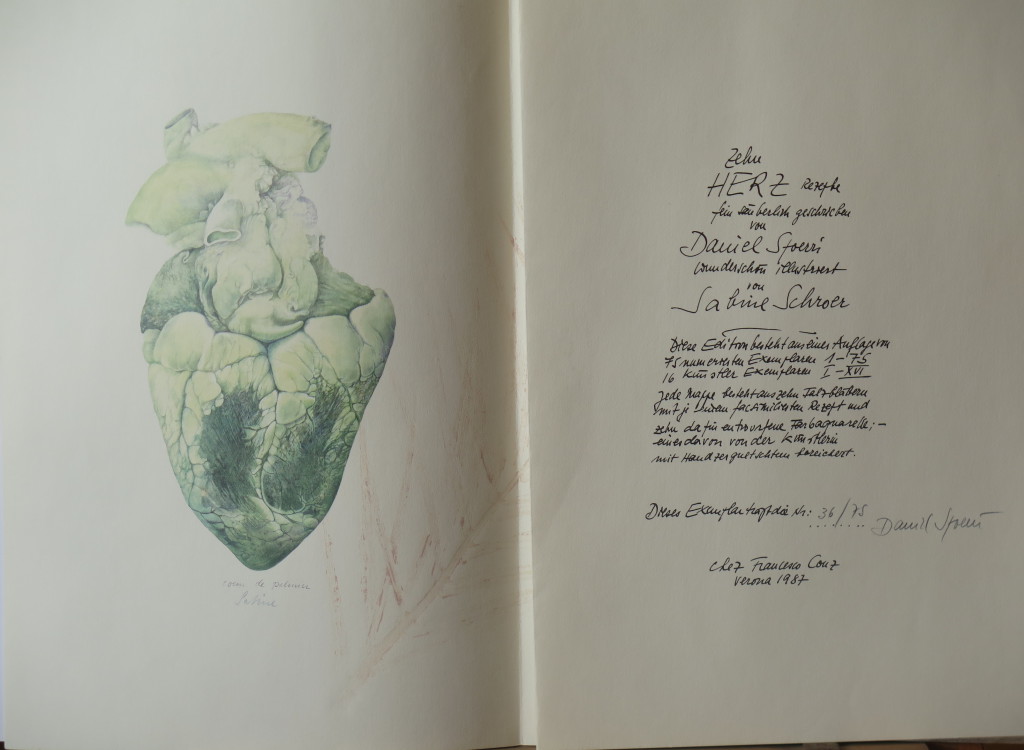 Sabine
Zehn
HERZ Rezepte
fein säuberlich geschrieben
von
Daniel Spoerri
wunderschön illustriert
von
Sabine Schroer
Diese Edition besteht aus einer Auflage von
75 numerierten Exemplaren 1-75
16 Künstler Exemplaren I-XVI
Jede Mappe besteht aus zehn Farbblättern
mit je einem facsimilierten Rezept und
zehn dafür entworfene Farbaquarelle; –
eines davon von der Künstlerin
mit Handzerquetschtem bereichert.
Dieses Exemplar trägt die Nr: 36/75
Daniel Spoerri
chez Francesco Conz
Verona 1987